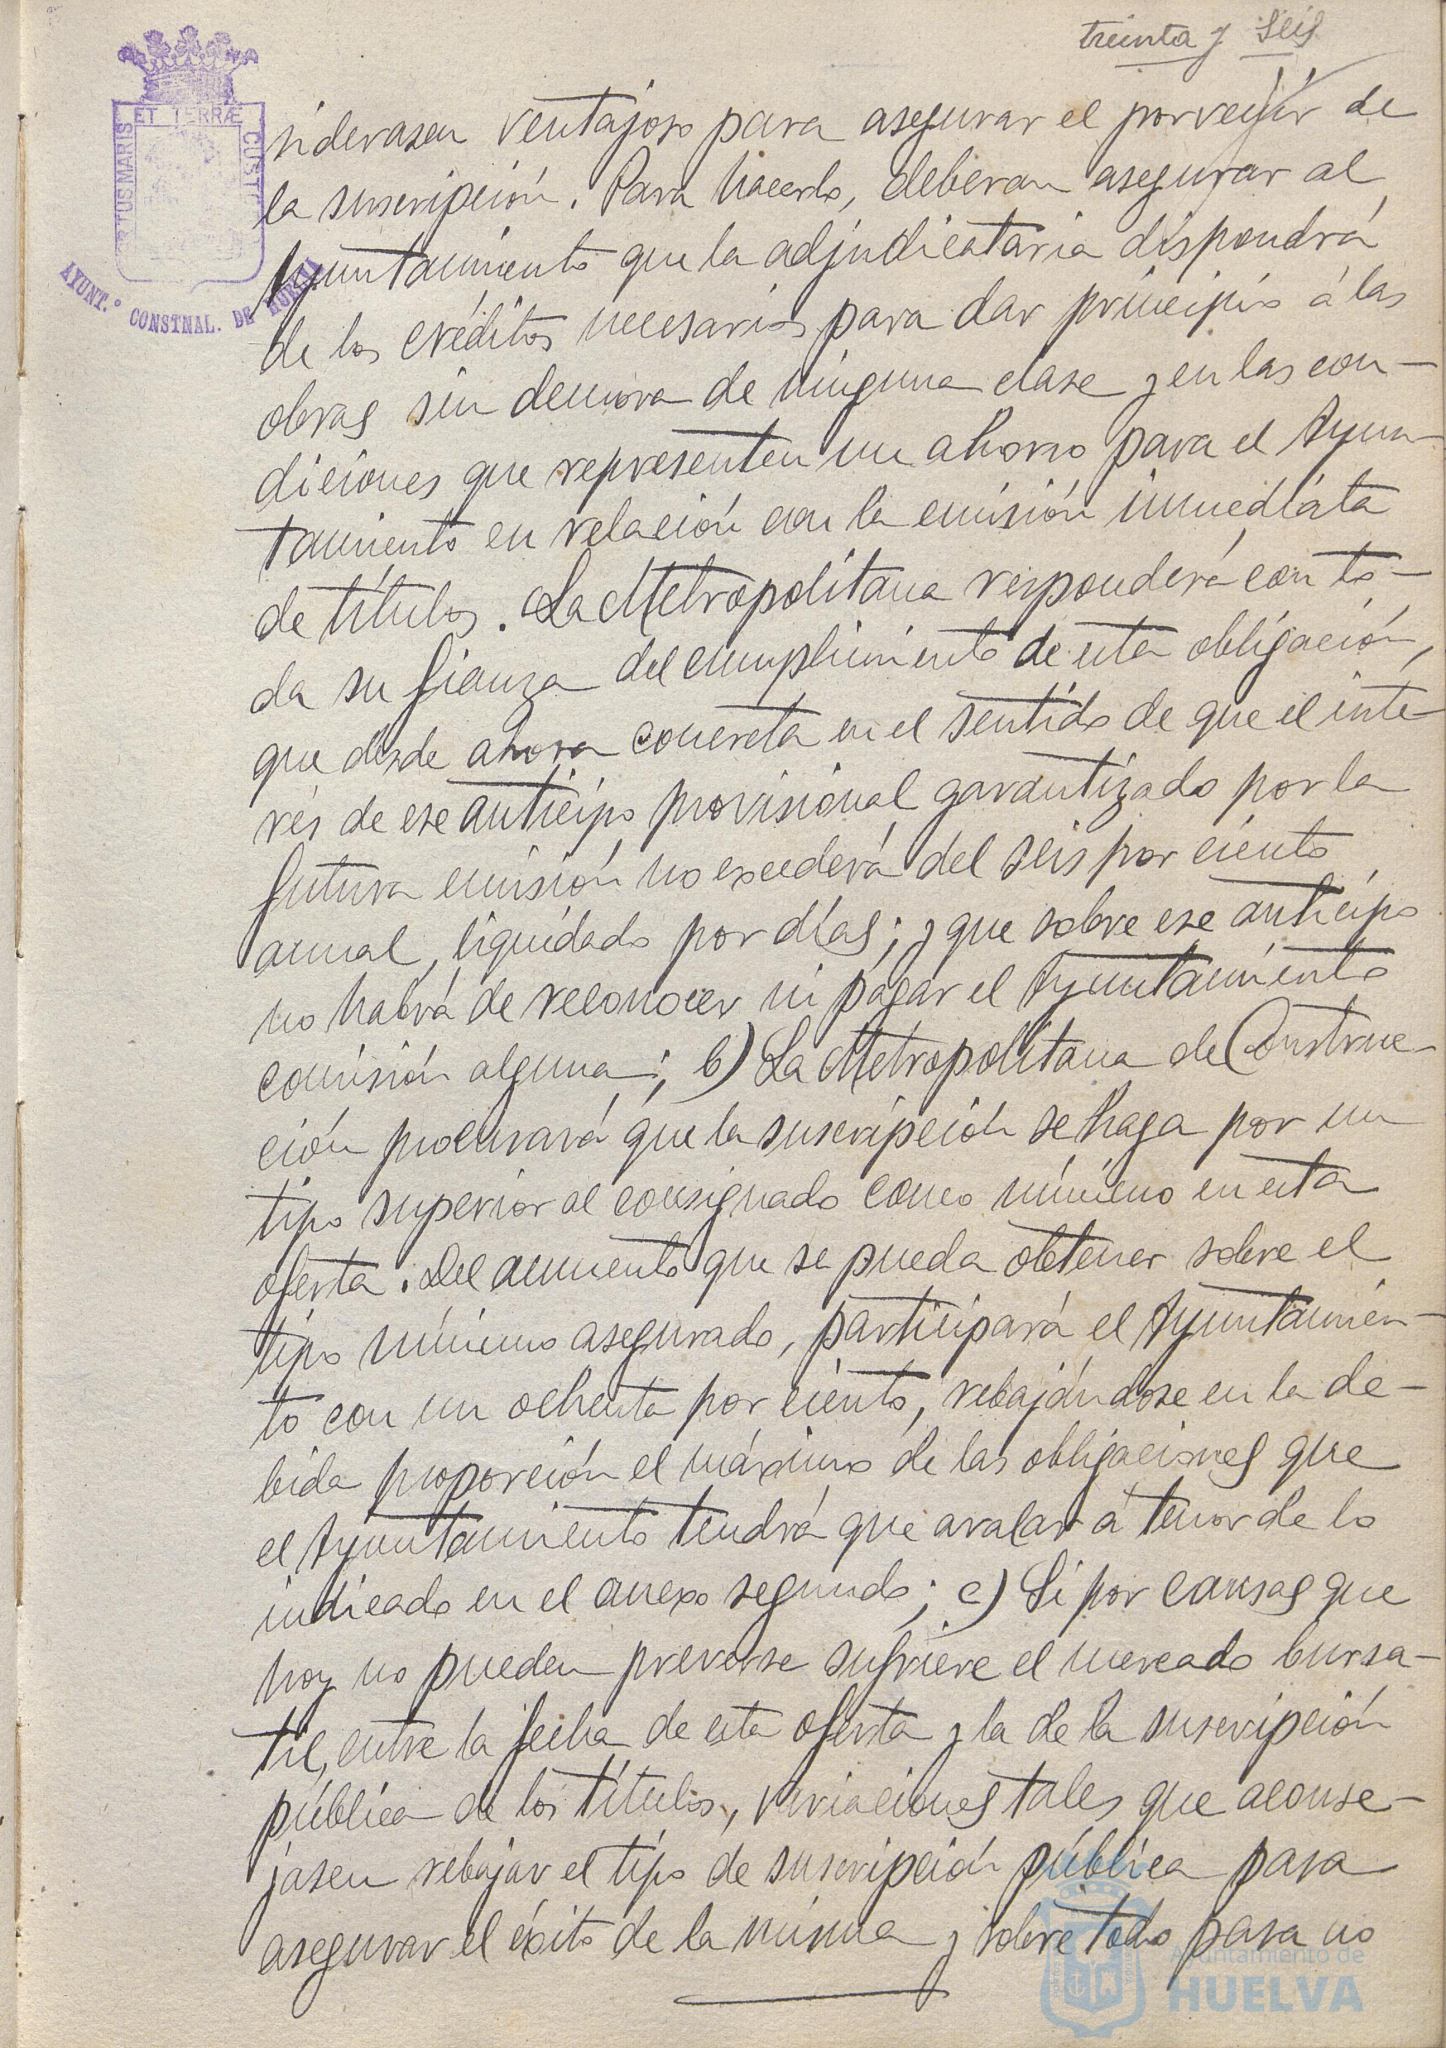 treinta y seis
PORTUS MARIS ET TERRÆ CUSTO
AYUNT.º CONSTNAL. DE HUELVA
siderasen ventajoso para asegurar el porvenir de
la suscripción. Para hacerlo, deberan asegurar al
Ayuntamiento que la adjudicataria dispondrá
de los créditos necesarios para dar principio á las
obras sin demora de ninguna clase y en las con-
diciones que representen un ahorro para el Ayun-
tamiento en relación con la emisión inmediata
de títulos. La Metropolitana responderá con to-
da su fianza del cumplimiento de esta obligación,
que desde ahora concreta en el sentido de que el inte
rés de ese anticipo provisional garantizado por la
futura emisión no excederá del seis por ciento
anual, liquidado por días; y que sobre ese anticipo
no habrá de reconocer ni pagar el Ayuntamiento
comisión alguna; b) La Metropolitana de Construc-
ción procurará que la suscripción se haga por un
tipo superior al consignado como mínimo en esta
oferta. Del aumento que se pueda obtener sobre el
tipo mínimo asegurado, participará el Ayuntamien-
to con un ochenta por ciento, rebajándose en la de-
bida proporción el máximo de las obligaciones que
el Ayuntamiento tendrá que avalar á tenor de lo
indicado en el anexo segundo; c) Si por causas que
hoy no pueden preverse sufriere el mercado bursa-
til, entre la fecha de esta oferta y la de la suscripción
pública de los títulos, variaciones tales que aconse-
jasen rebajar el tipo de suscripción pública para
asegurar el éxito de la misma y sobre todo para no
Ayuntamiento de
HUELVA